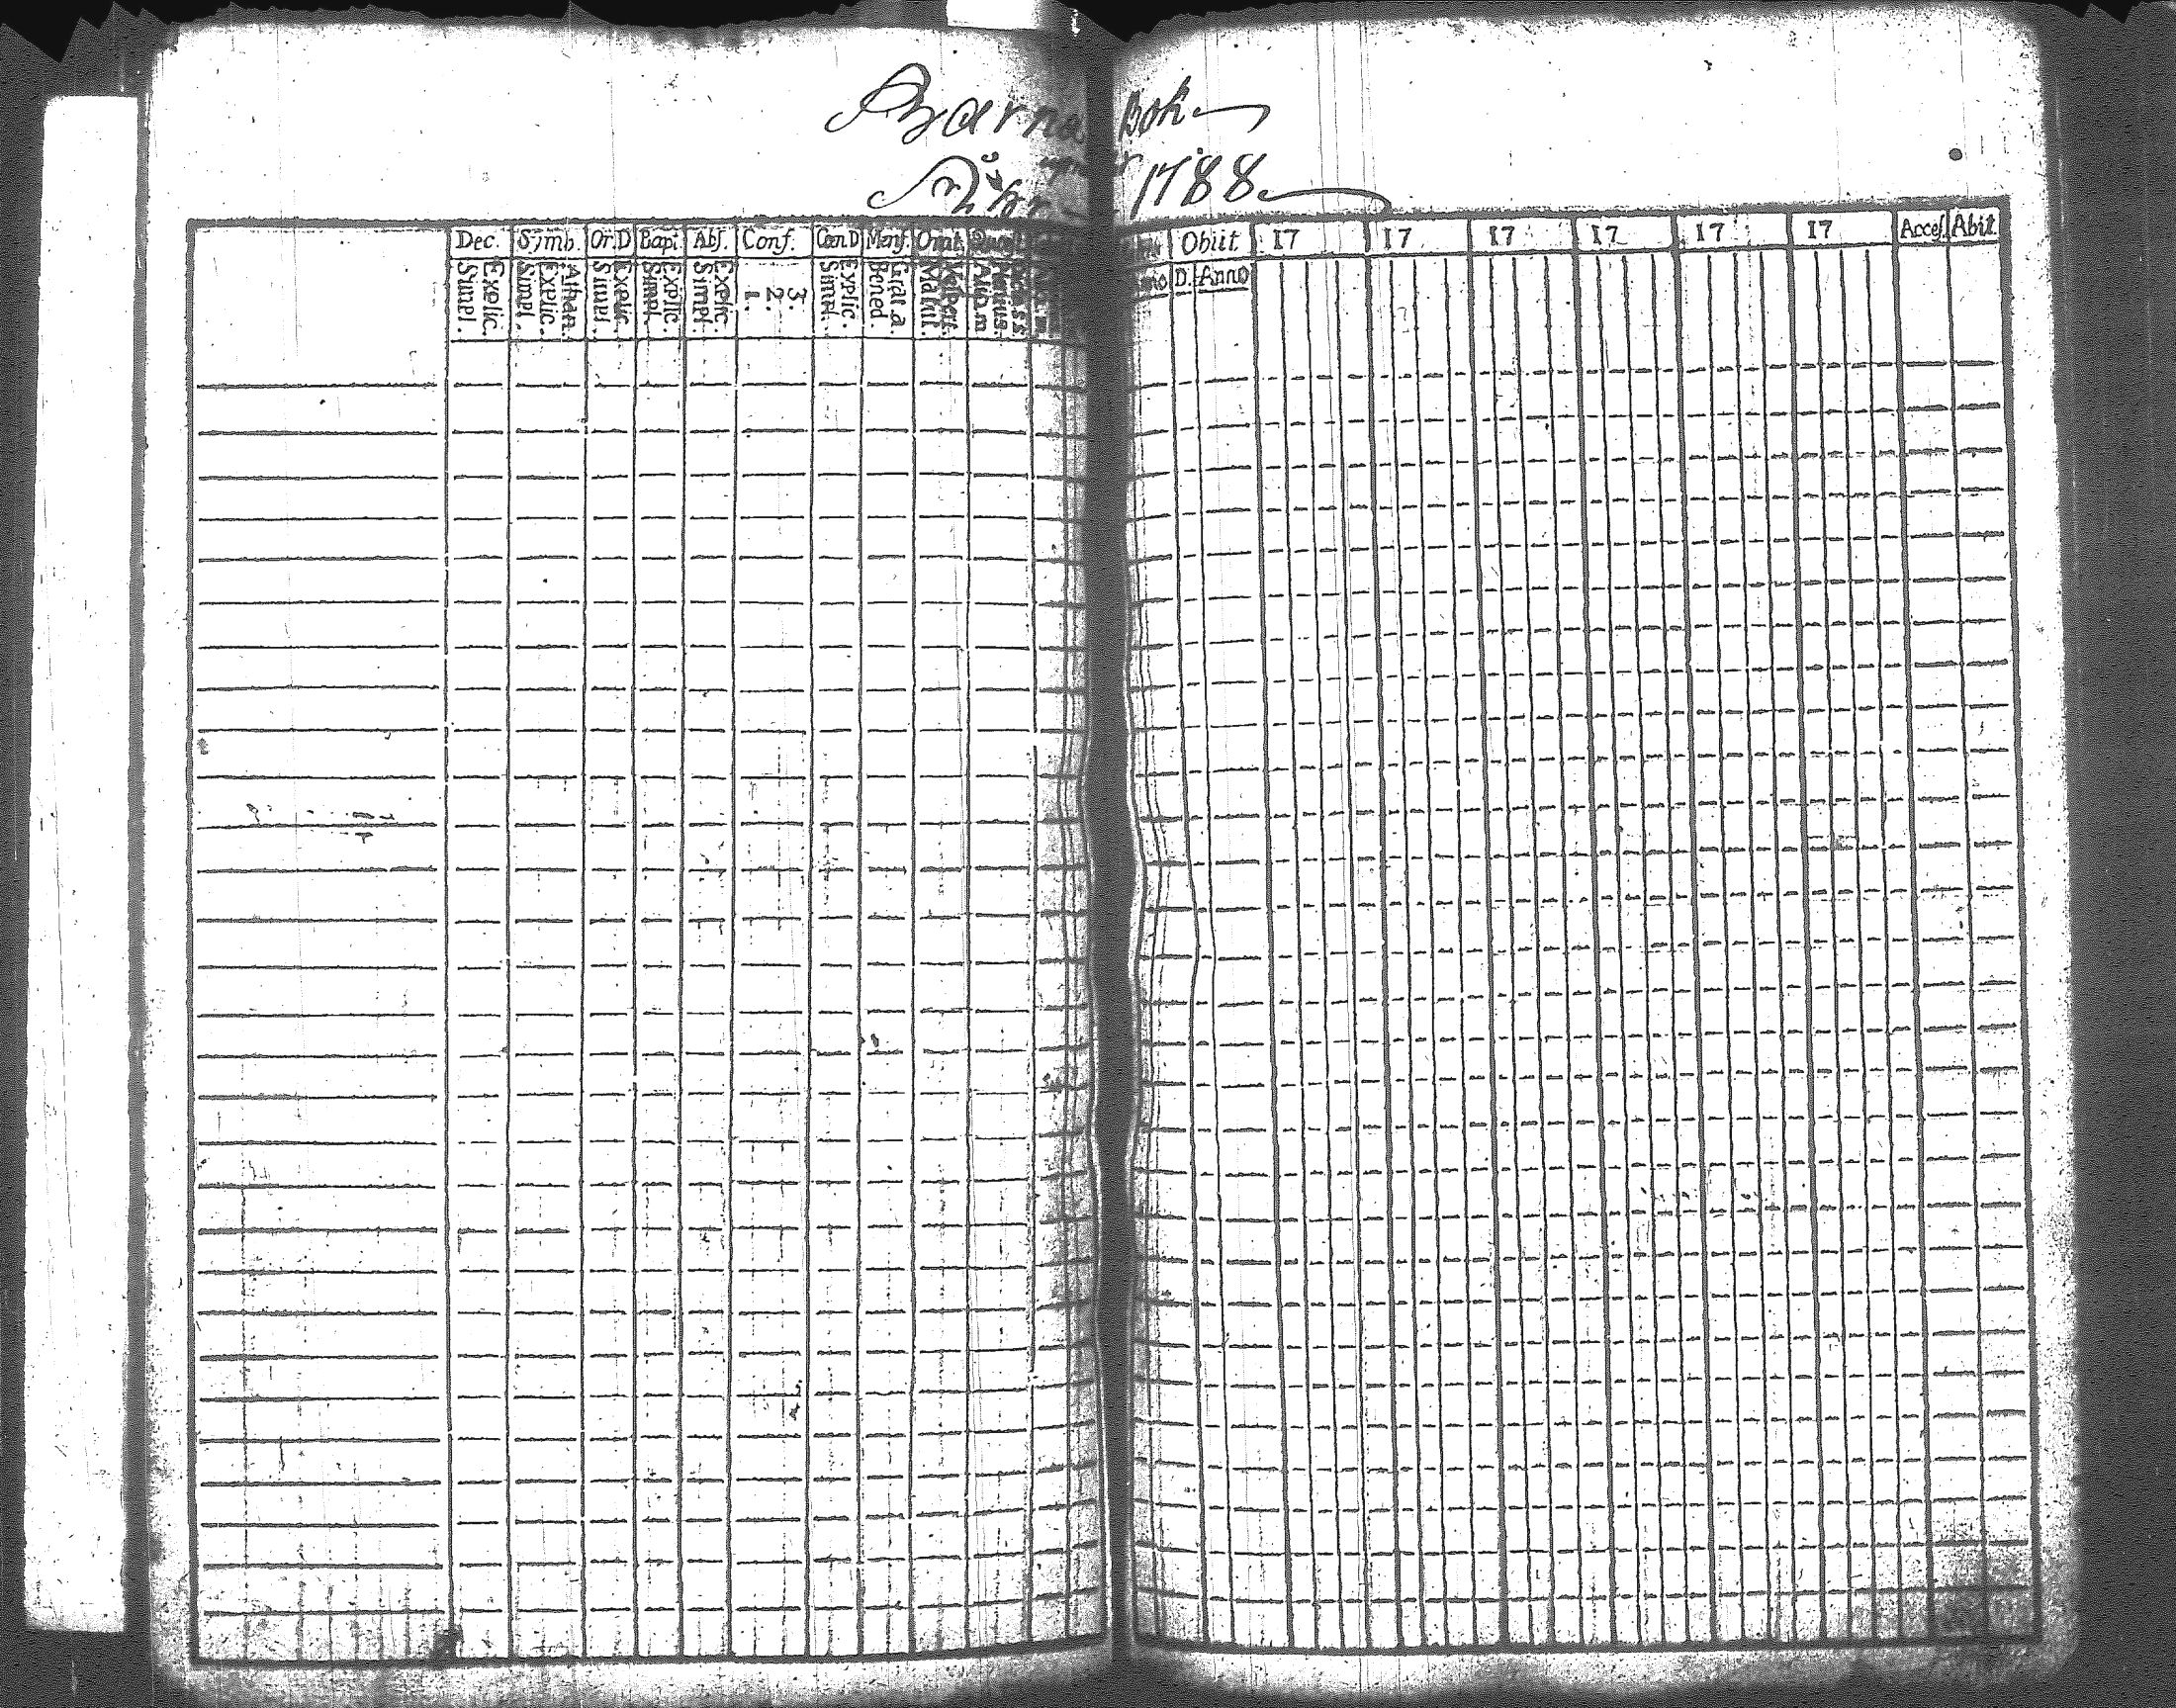 Barna Bok
1788
Dec. Simb. Or.D Bapt. Abs. Conf. Can D Mens. Orat. Obiit. 17 17 17 17 17 17 Acces. Abit.
Explic. Simpl. Athan. Explic. Simpl. Explic. Simpl. Explic. Simpl. Explic. Simpl. 3. 2. 1. Explic. Simpl. Grat.a. Bened. Vespert. Matut. D. Anno